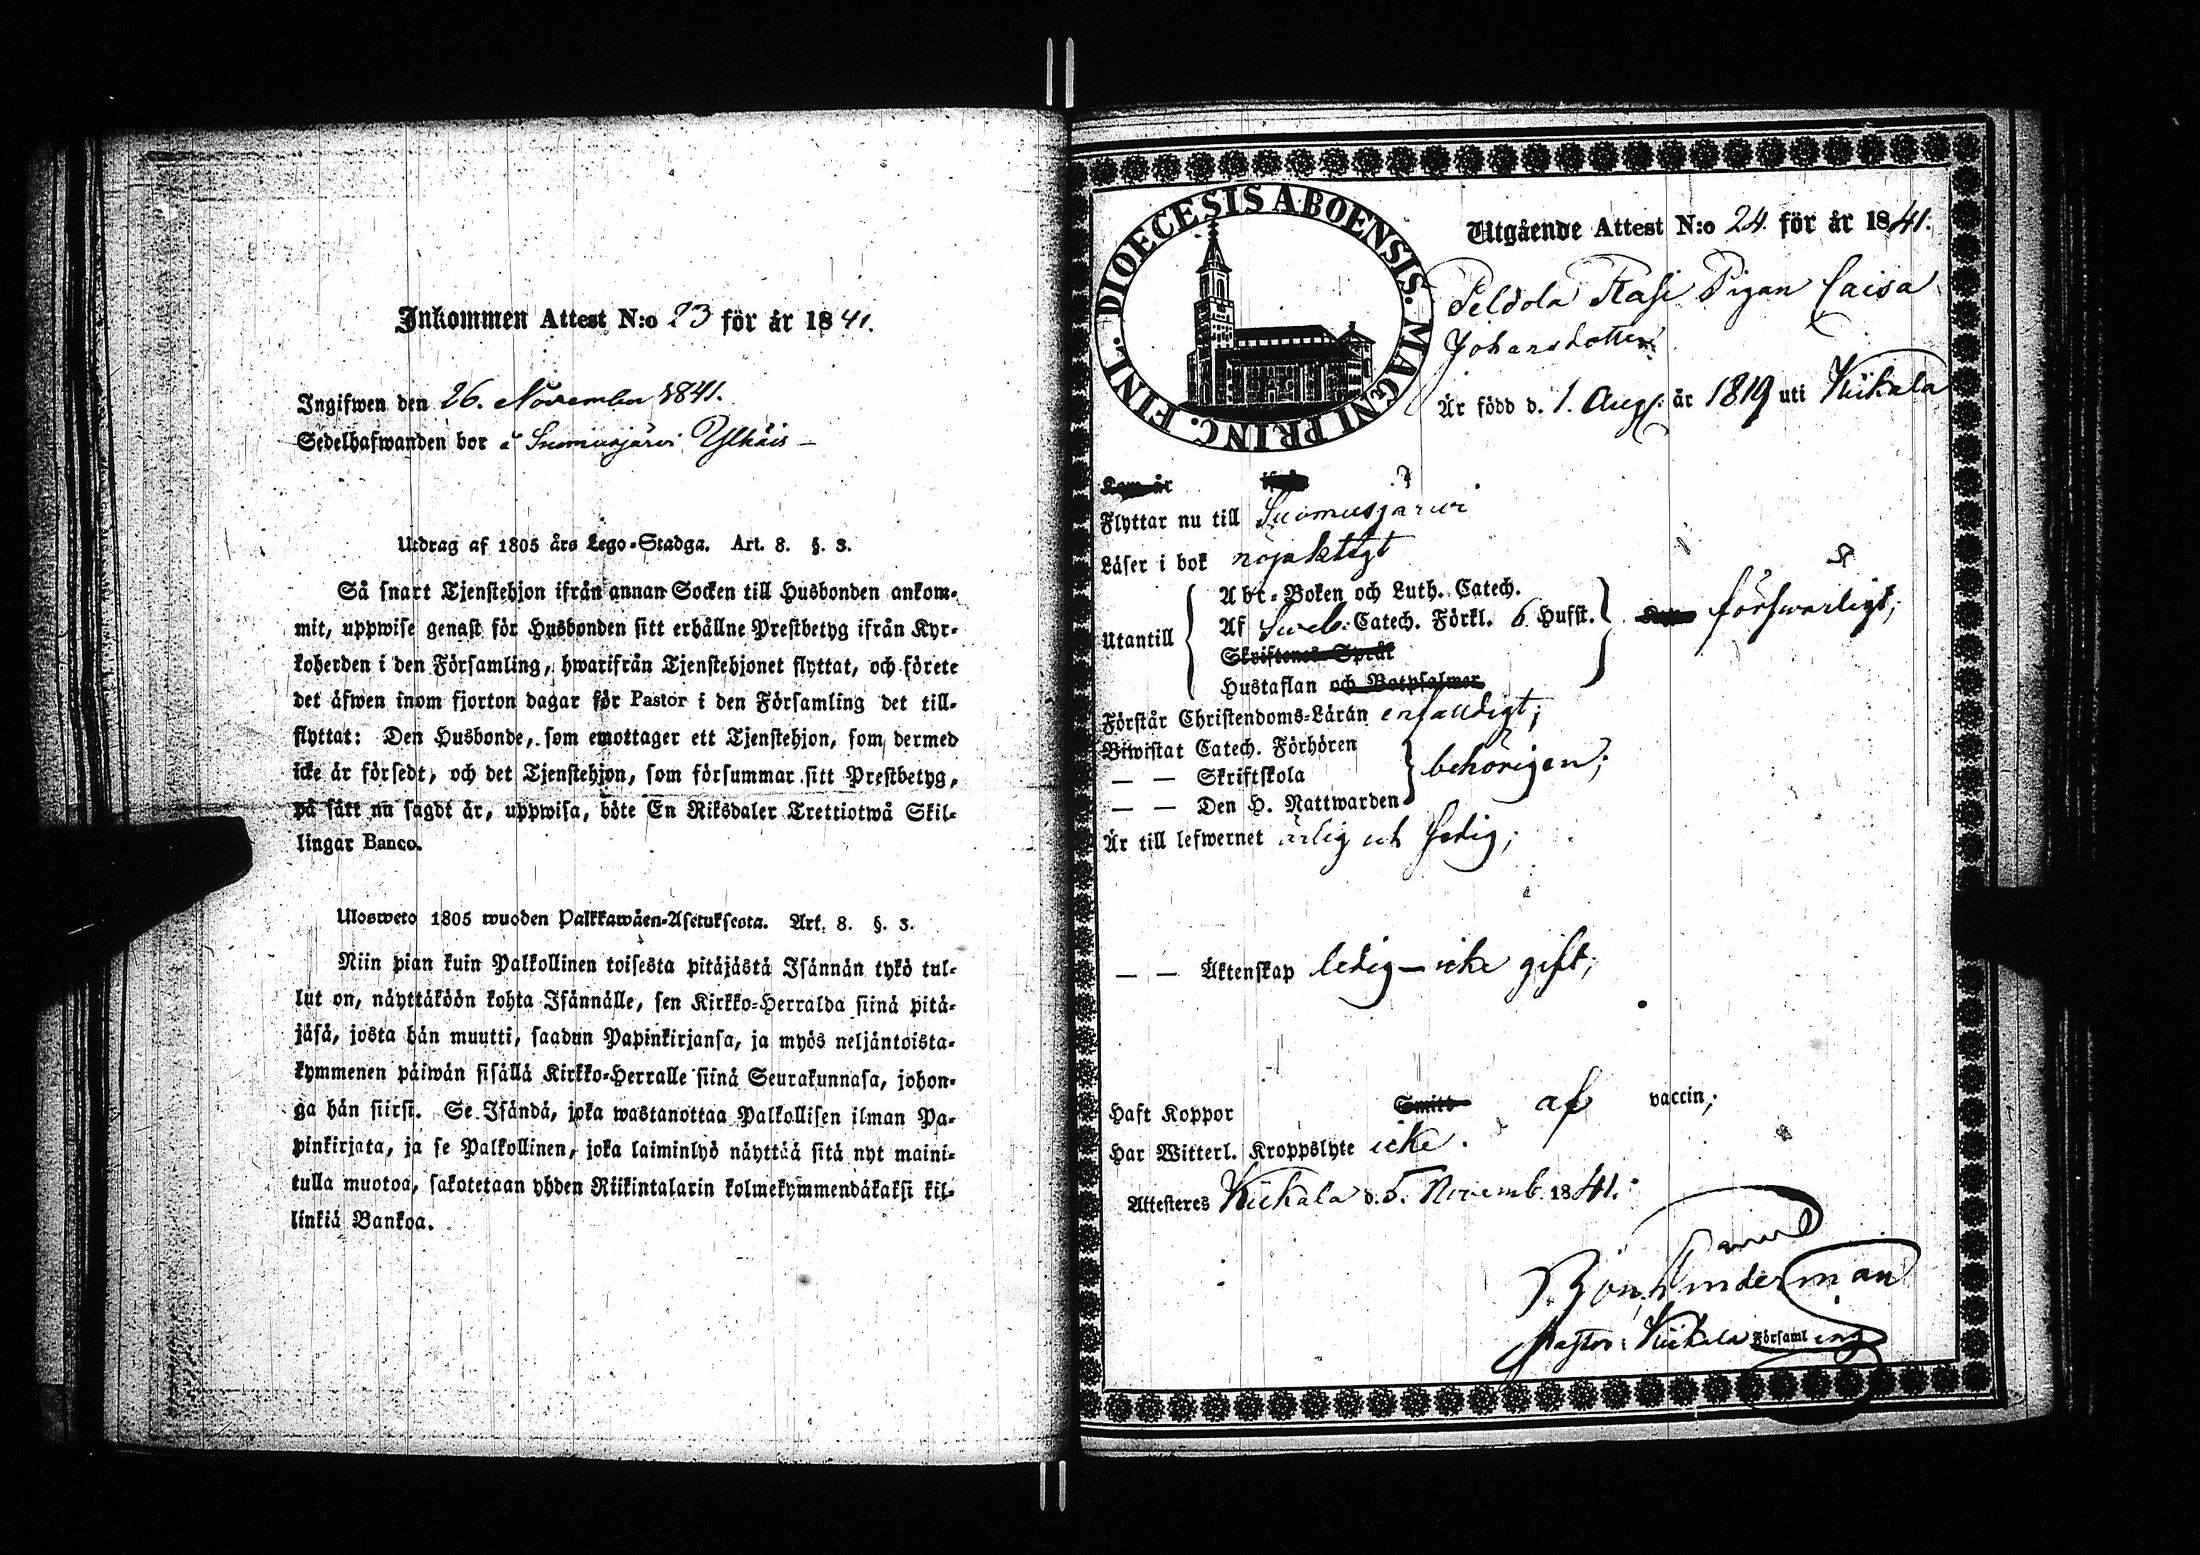 Inkommen Attest N:o 23 för år 1841.
Ingifwen den 26. November 1841.
Sedelhafwanden bor i Suomusjärvi Ylhäis –
Utdrag af 1805 års Lego-Stadga. Art. 8. §. 3.
Så snart Tjenstehjon ifrån annan Socken till Husbonden ankom-
mit, uppwise genast för Husbonden sitt erhållne Prestbetyg ifrån Kyr-
koherden i den Församling, hwarifrån Tjenstehjonet flyttat, och förete
det äfwen inom fjorton dagar för Pastor i den Församling det till-
flyttat: Den Husbonde, som emottager ett Tjenstehjon, som dermed
icke är försedt, och det Tjenstehjon, som försummar sitt Prestbetyg,
på sätt nu sagdt är, uppwisa, böte En Riksdaler Trettiotwå Skil-
lingar Banco.
Ulosweto 1805 wuoden Palkkawäen-Asetuksesta. Art. 8. §. 3.
Niin pian kuin Palkollinen toisesta pitäjästä Isännän tykö tul-
lut on, näyttäköön kohta Isännälle, sen Kirkko-Herralda siinä pitä-
jäsä, josta hän muutti, saadun Papinkirjansa, ja myös neljäntoista-
kymmenen päiwän sisällä Kirkko-Herralle siinä Seurakunnasa, johon-
ga hän siirsi. Se Isändä, joka wastanottaa Palkollisen ilman Pa-
pinkirjata, ja se Palkollinen, joka laiminlyö näyttää sitä nyt maini-
tulla muotoa, sakotetaan yhden Riikintalarin kolmekymmendäkaksi kil-
linkiä Bankoa.
DIOECESIS ABOENSIS. MAGNI PRINC. FINL.
Utgående Attest N:o 24. för år 1841.
Peldola Rasi Pigan Caisa
Johansdotter
Är född d. 1. Aug. år 1819 uti Kiikala
Flyttar nu till Suomusjärwi
Läser i bok nöjaktigt
Abc-Boken och Luth. Catech.
Utantill Af Sweb. Catech. Förkl. 6 Hufst. försvarligt;
Skriftenes Språk
Hustaflan och Botpsalmer
Förstår Christendoms-Läran enfaldigt;
Biwistat Catech. Förhören
— — Skriftskola behörigen;
— — Den H. Nattwarden
Är till lefwernet ärlig och fredig;
— — Äktenskap ledig – icke gift;
Haft Koppor Smitt af vaccin;
Har Witterl. Kroppslyte icke.
Attesteres Kiikala d. 5. Novemb. 1841.
Pastor i Kiikala Församling